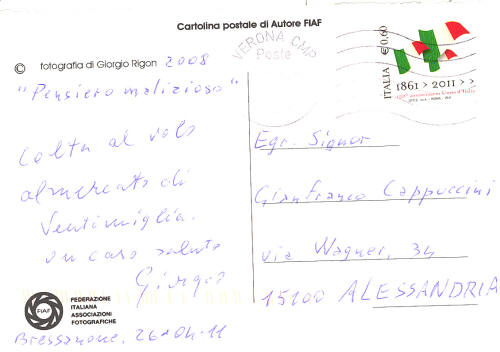 Cartolina postale di Autore FIAF
VERONA CMP
Poste
ITALIA € 0,60
1861 > 2011 > >
150° anniversario Unità d'Italia
© fotografia di Giorgio Rigon 2008
"Pensiero malizioso"
Colta al volo
al mercato di
Ventimiglia.
un caro saluto
Giorgio
Egr. Signor
Gianfranco Cappuccini
via Wagner, 34
15100 ALESSANDRIA
FIAF
FEDERAZIONE
ITALIANA
ASSOCIAZIONI
FOTOGRAFICHE
Bressanone, 26-04-11